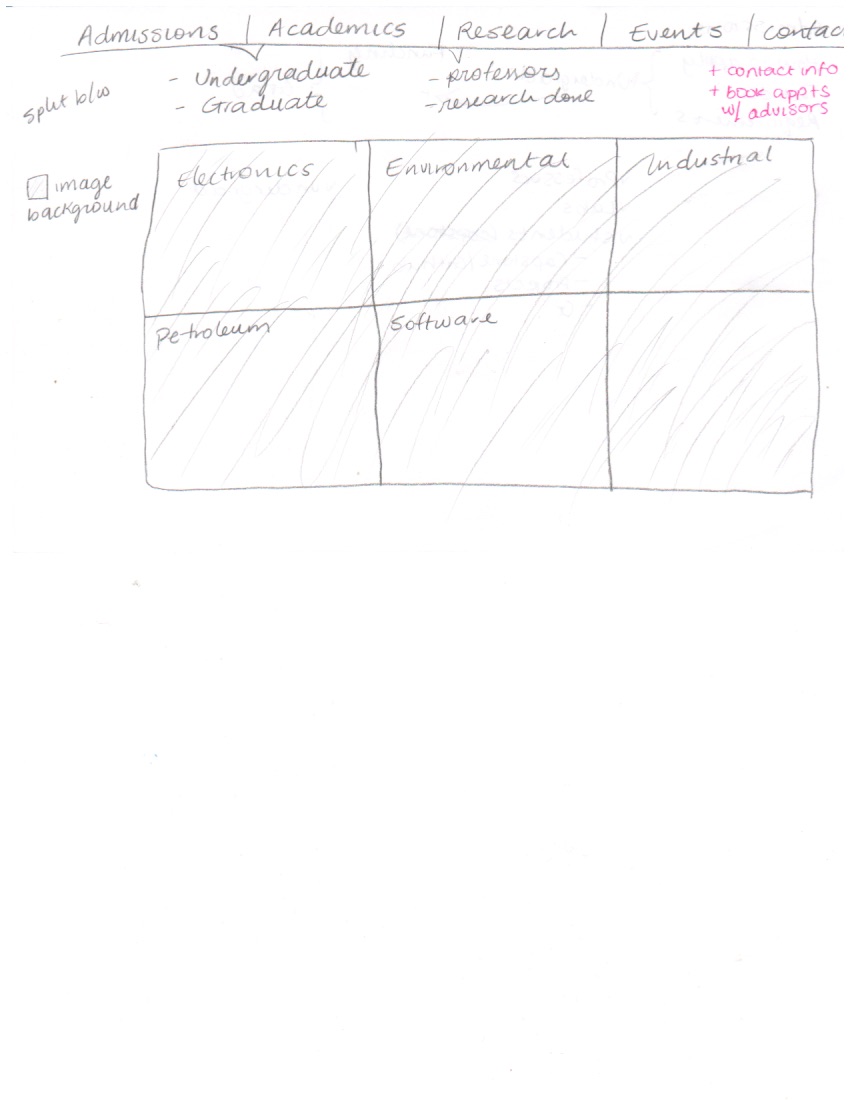 Admissions | Academics | Research | Events | Contac
split b/w
- Undergraduate
- Graduate
- professors
- research done
+ contact info
+ book appts
w/ advisors
image
background
Electronics
Environmental
Industrial
Petroleum
Software